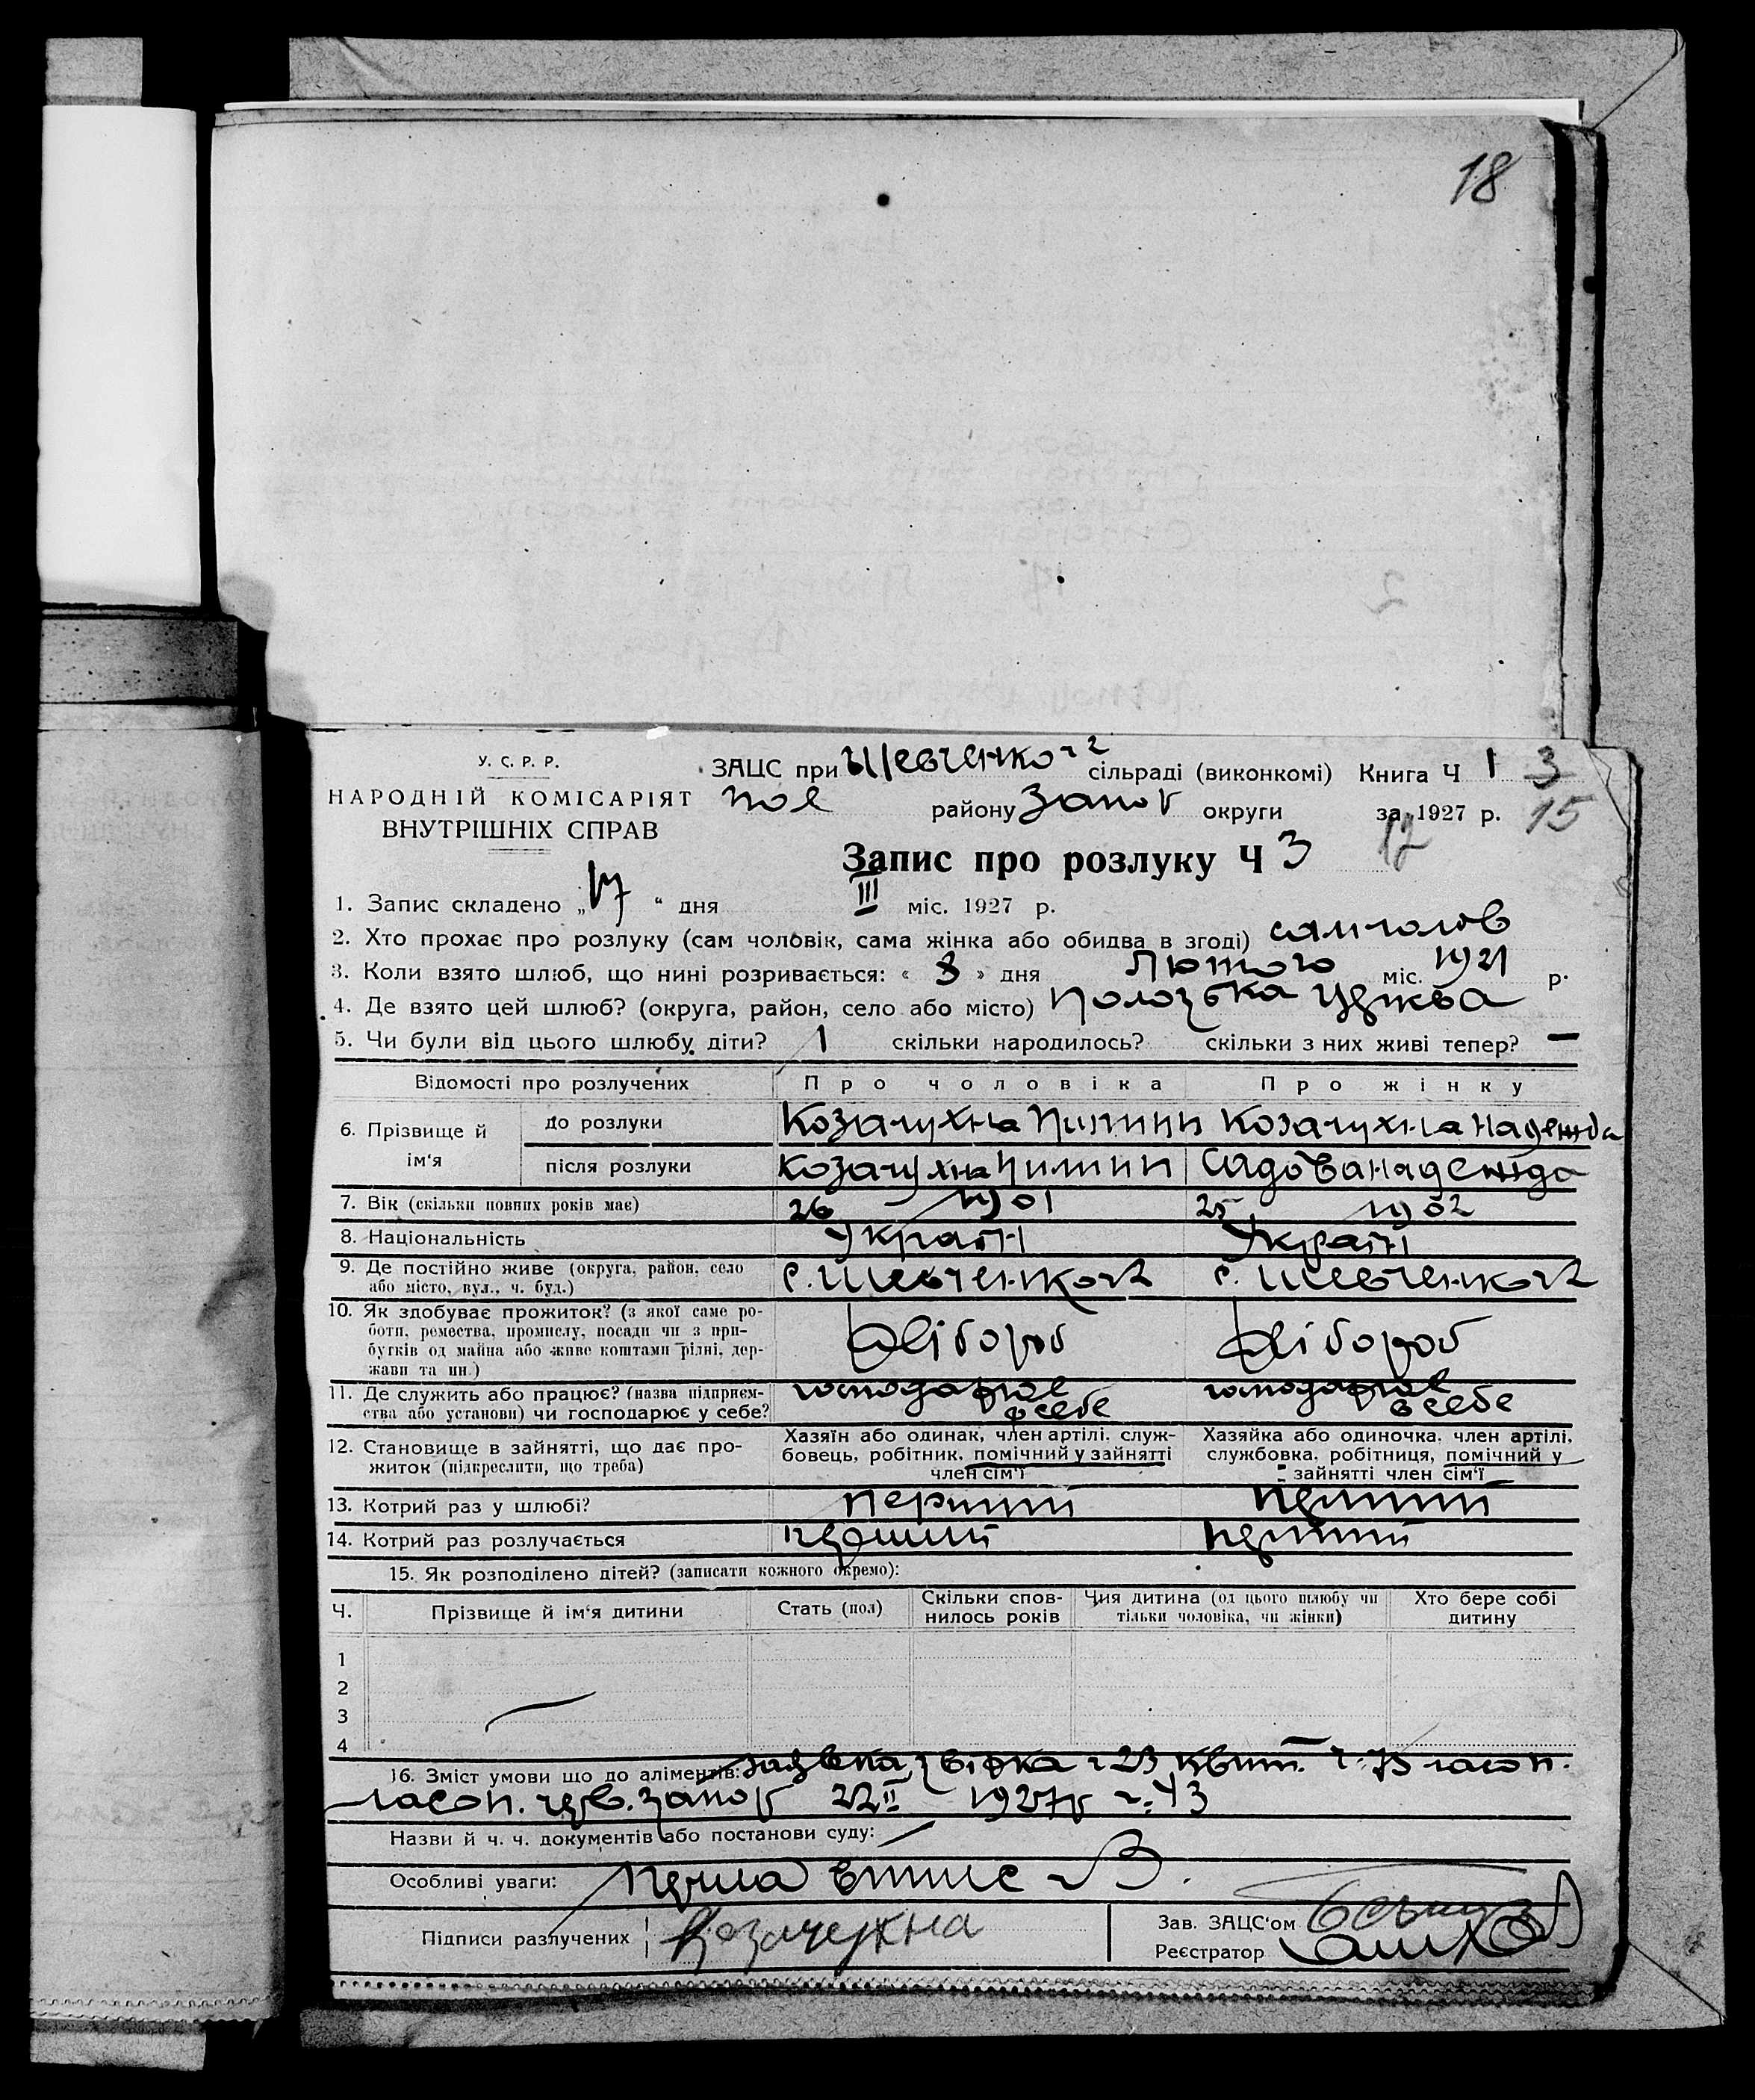 18
У. С. Р. Р.
НАРОДНІЙ КОМІСАРІЯТ
ВНУТРІШНІХ СПРАВ
ЗАЦС при Шевченко сільраді (виконкомі) Книга Ч 1 3
Пол району Запор округи за 1927 р. 15
12
Запис про розлуку Ч 3
1. Запис складено „17“ дня III міс. 1927 р.
2. Хто прохає про розлуку (сам чоловік, сама жінка або обидва в згоді) сам чолов
3. Коли взято шлюб, що нині розривається: «8» дня Лютого міс. 1921 р.
4. Де взято цей шлюб? (округа, район, село або місто) Пологівська церква
5. Чи були від цього шлюбу діти? 1 скільки народилось? скільки з них живі тепер? —
Відомості про розлучених Про чоловіка Про жінку
6. Прізвище й ім‘я
до розлуки Козачухна Пилип Козачухна Надежда
після розлуки Козачухна Пилип Садова Надежда
7. Вік (скільки повних років має) 26 1901 25 1902
8. Національність Україн Україн
9. Де постійно живе (округа, район, село
або місто, вул., ч. буд.) с. Шевченко с. Шевченко
10. Як здобуває прожиток? (з якої саме ро-
боти, ремества, промислу, посади чи з при-
бутків од майна або живе коштами рідні, дер-
жави та ин.) Хлібороб Хлібороб
11. Де служить або працює? (назва підприєм-
ства або установи) чи господарює у себе? господарює в себе господарює в себе
12. Становище в зайнятті, що дає про-
житок (підкреслити, що треба)
Хазяїн або одинак, член артілі, служ-
бовець, робітник, помічний у зайнятті
член сім‘ї
Хазяйка або одиночка, член артілі,
службовка, робітниця, помічний у
зайнятті член сім‘ї
13. Котрий раз у шлюбі? перший перший
14. Котрий раз розлучається перший перший
15. Як розподілено дітей? (записати кожного окремо):
Ч. Прізвище й ім‘я дитини Стать (пол) Скільки спов-
нилось років Чия дитина (од цього шлюбу чи
тільки чоловіка, чи жінки) Хто бере собі
дитину
1
2
3
4
16. Зміст умови що до аліментів: 23 квит. 75
запор 22 II 1927 р 43
Назви й ч. ч. документів або постанови суду:
Особливі уваги:
Підписи разлучених Козачухна
Зав. ЗАЦС‘ом
Реєстратор